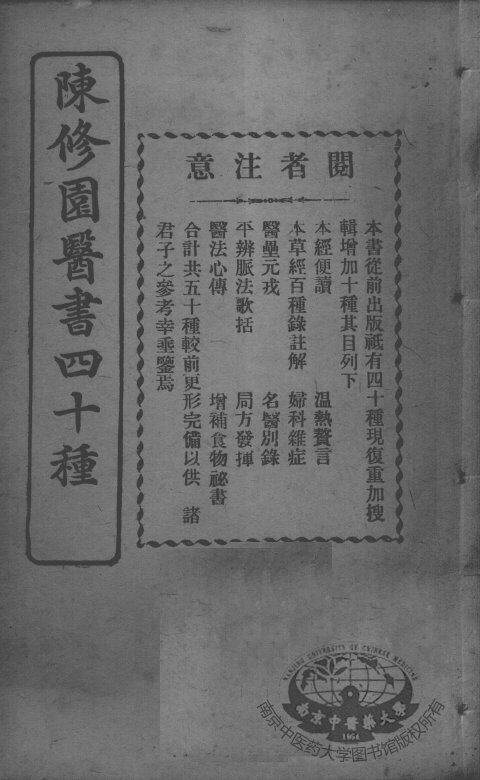 陳修園醫書四十種
閱者注意
本書從前出版祗有四十種現復重加搜
輯增加十種其目列下
本經便讀 溫熱贅言
本草經百種錄註解 婦科雜症
醫壘元戎 名醫別錄
平辨脈法歌括 局方發揮
醫法心傳 增補食物祕書
合計共五十種較前更形完備以供 諸
君子之參考幸垂鑒焉
NANJING UNIVERSITY OF CHINESE MEDICINE
南京中醫藥大學
1954
南京中医药大学图书馆版权所有